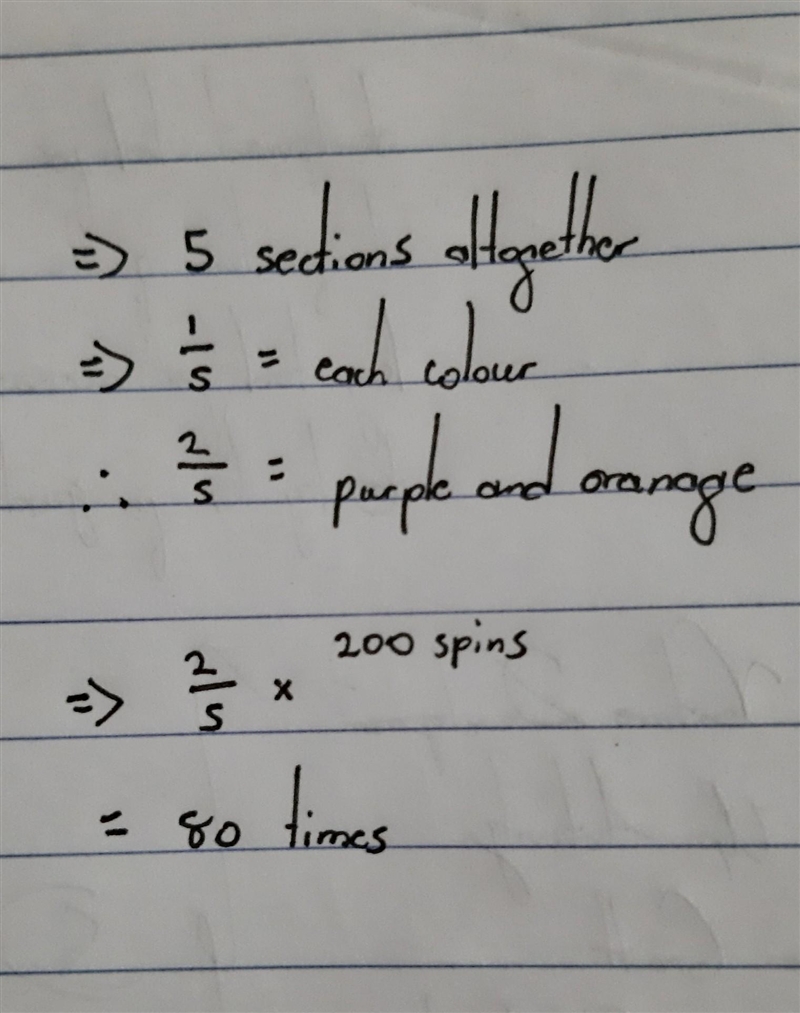 => 5 sections altogether
=> 1/5 = each colour
∴ 2/5 = purple and oranage
=> 2/5 × 200 spins
= 80 times